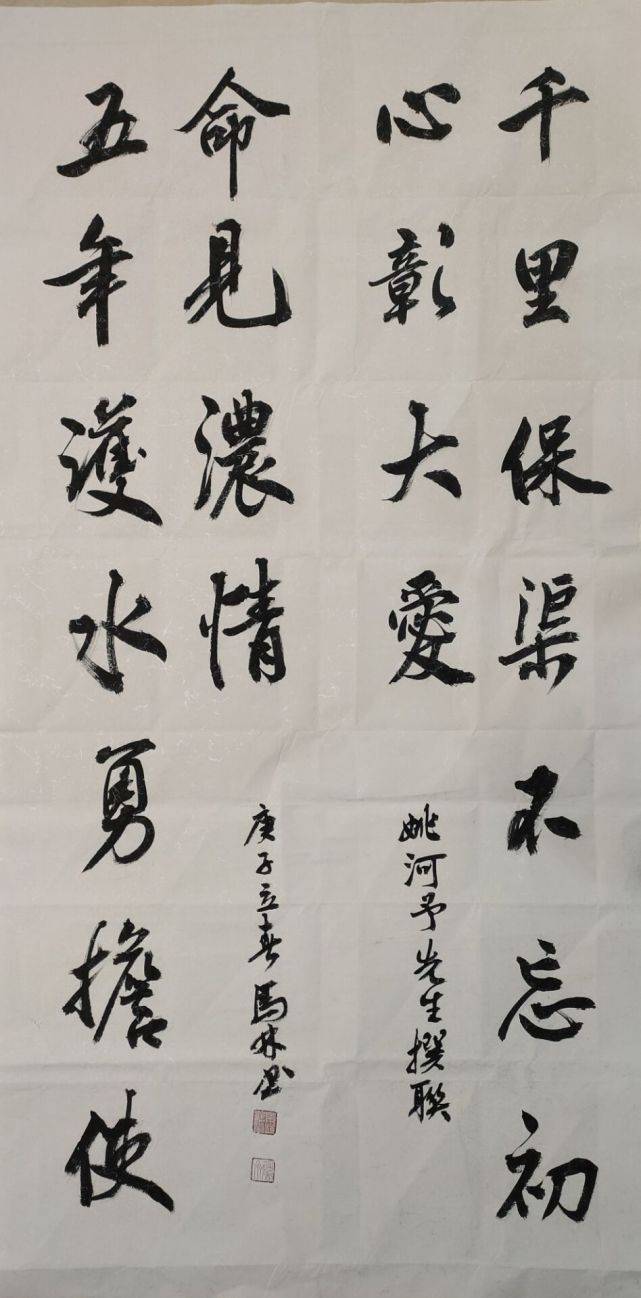 千里保渠不忘初
心彰大愛
姚河予先生撰聯
五年護水勇擔使
命見濃情
庚子立春馬林書